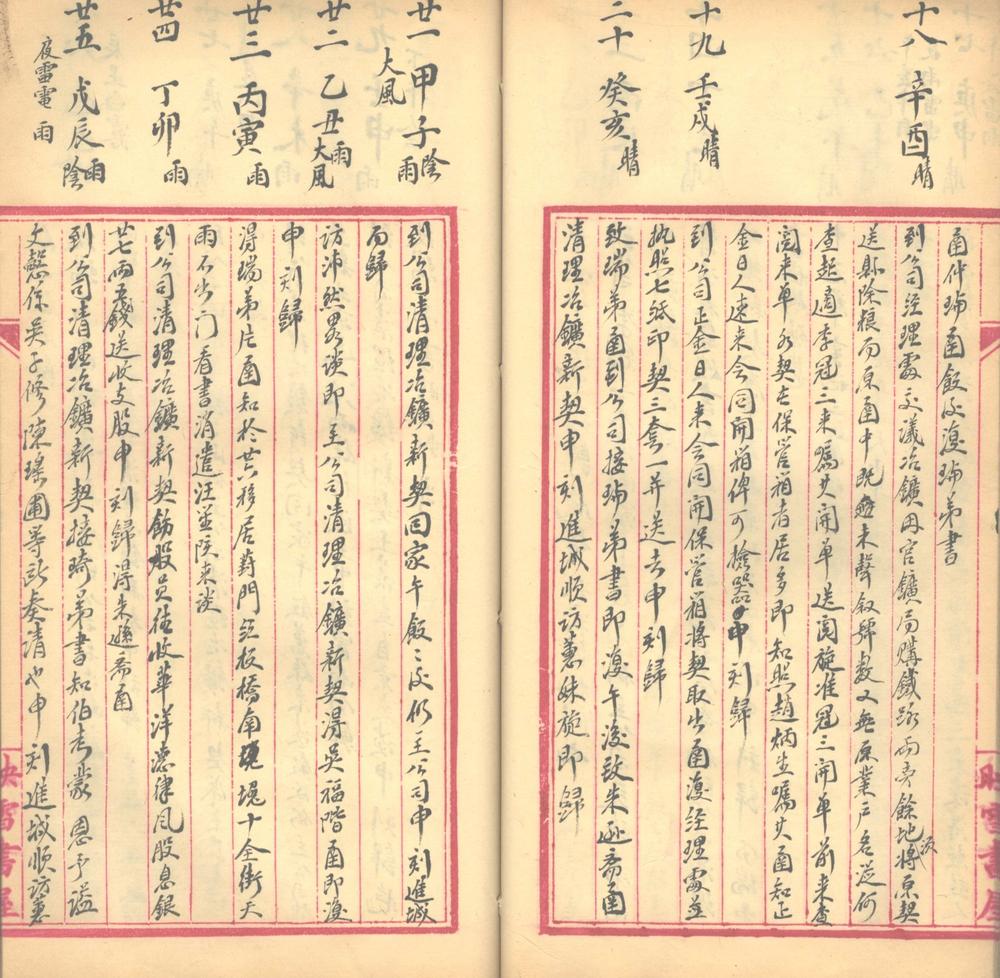 十八 辛酉 晴
函仲瑜函飯後復瑜弟書
到公司經理處交議冶鑛毋官鑛局購鐵路兩旁餘地將原契
送縣除粮而原函中既無未聲敘號數又無原業戶名從何
查起適李冠三來囑其開單送閱旋准冠三開單前來查
閱來單外契在保管箱者居多即知照趙炳生囑其函知正
金日人速來会同開箱俾可檢 申刻歸
十九 壬戌 晴
到公司正金日人來会同開保管箱將契取出函復經理處並
執照七紙印契三套一并送去申刻歸
二十 癸亥 晴
致瑞弟函到公司接瑜弟書即復午後致朱遜齋函
清理冶鑛新契申刻進城順訪蕙妹旋即歸
廿一 甲子 陰雨 大風
到公司清理冶鑛新契回家午飯飯後仍至公司申刻進城
而歸
廿二 乙丑 雨 大風
訪沛然畧談即至公司清理冶鑛新契得吳福階函即復
申刻歸
廿三 丙寅 雨
得瑞弟片函知於廿六移居葑門紅板橋南堍十全街天
雨不出门看書消遣汪 來談
廿四 丁卯 雨
到公司清理冶鑛新契飭股員往收華洋德律風股息銀
廿七兩五錢送收支股申刻歸得朱遜齋函
廿五 戊辰 陰雨 夜雷電雨
到公司清理冶鑛新契接琦弟書知伯考蒙恩予謚
文慤係吳子修陳瑤圃等 奏請也申刻進城順訪蕙
映雪書屋